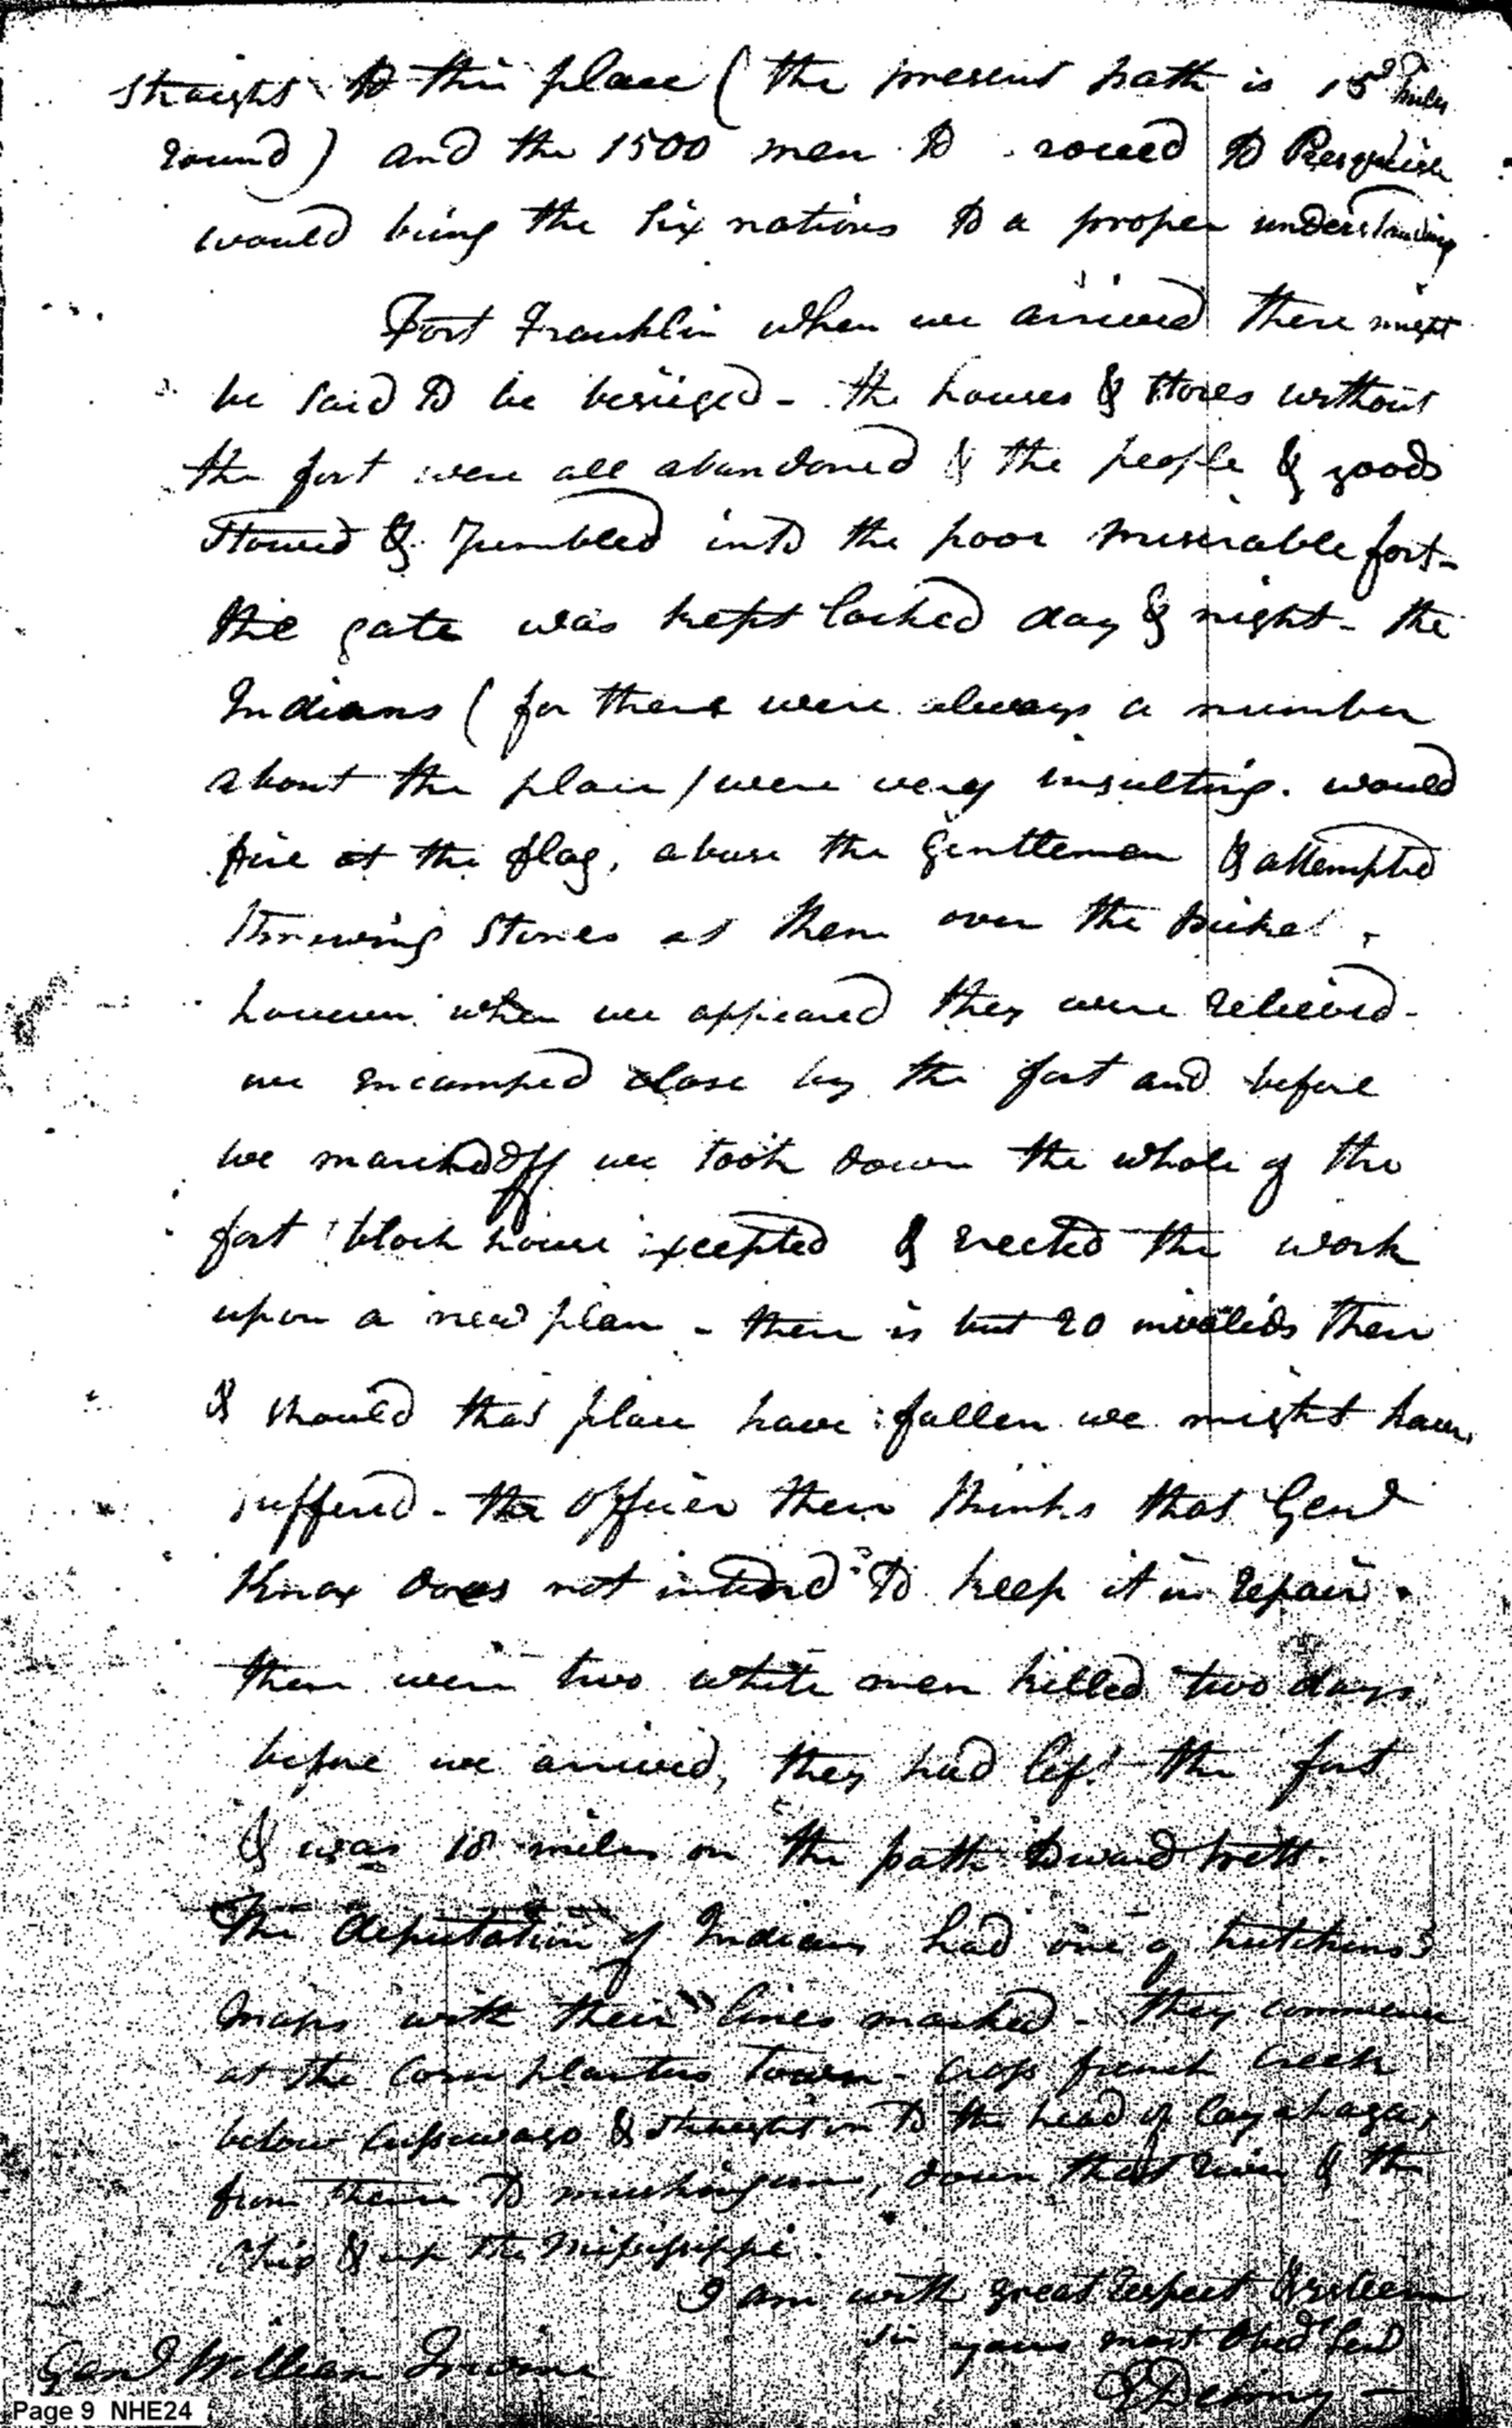 straight to this place (the present path is 15 miles
round) and the 1500 men to proceed to Presquisle
would bring the Six nations to a proper understanding
Fort Franklin when we arrived there might
be said to be besieged - the houses & stores without
the fort were all abandoned & the people & goods
stowed & Jumbled into the poor miserable fort -
the gate was kept locked day & night - the
Indians (for there were always a number
about the place) were very insulting. would
fire at the flag, abuse the Gentlemen & attempted
throwing stones at them over the Picket.
however when we appeared they were relieved -
we encamped close by the fort and before
we marched off we took down the whole of the
fort block house excepted & erected the work
upon a new plan - there is but 20 invalids there
& should that place have fallen we might have
suffered - the officer there thinks that Genl
Knox does not intend to keep it in repair.
there were two white men killed two days
before we arrived, they had left the fort
& was 18 miles on the path toward Pitt.
The deputation of Indians had one of hutchins's
maps with their lines marked - they commence
at the Corn planters Town - cross french Creek
below Cussewago & straight on to the head of Cayahaga,
from thence to muskingum, down that river & the
Ohio & up the Mississippi.
I am with great respect & esteem
Sir yours most Obed Serv
E Denny
Genl William Irvine
Page 9 NHE24